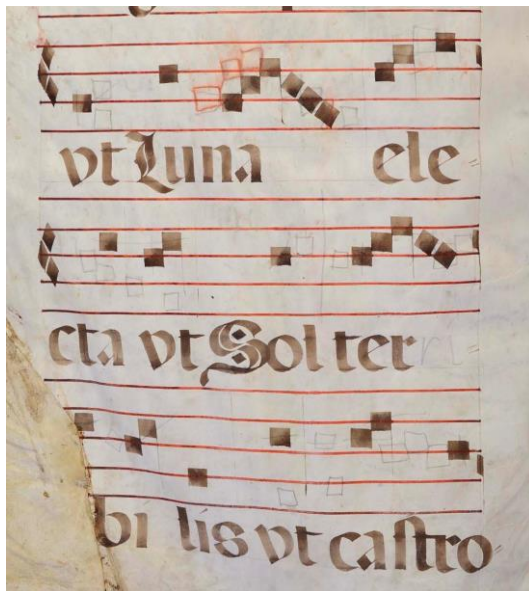 vt Luna ele=
cta vt Sol ter
bi lis vt castro=